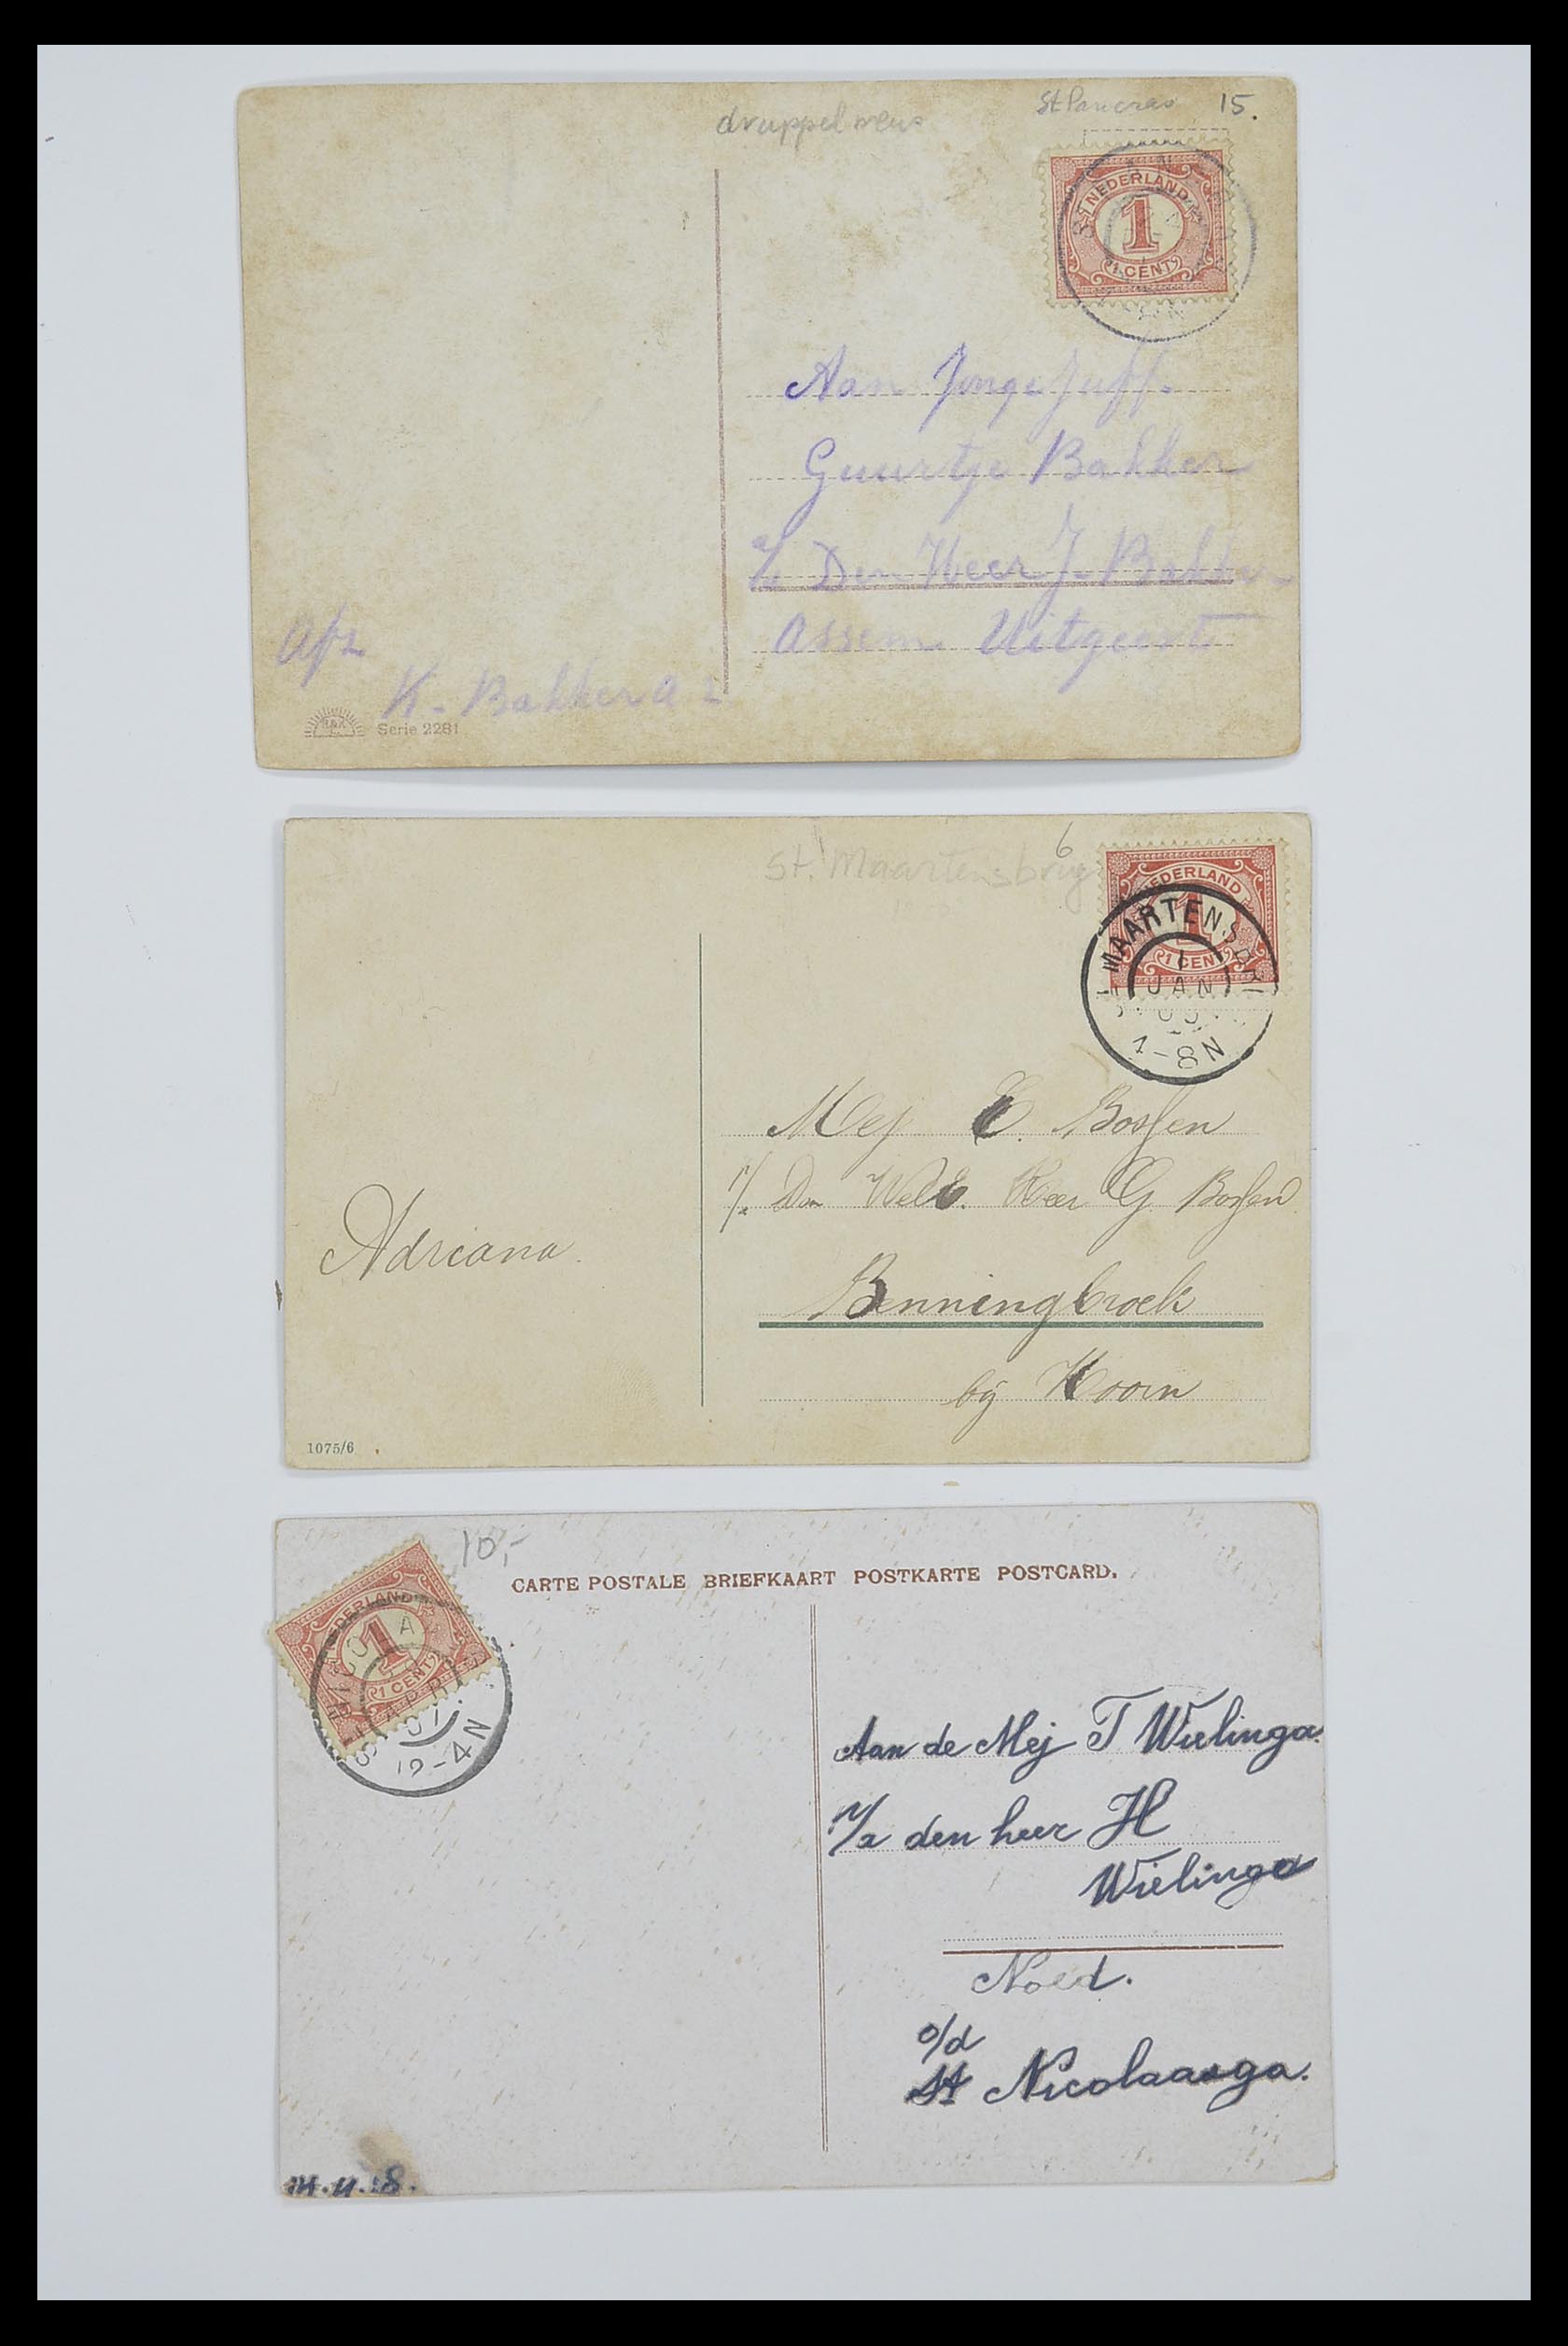 druppelreus
St Pancras 15.
NEDERLAND
1
1 CENT
Aan Jonge Juff.
Guurtje Bakker
a/h Den Heer J. Bakker
Assem Uitgeest
Afz
K. Bakker Az
Serie 2281
6
St. Maartensbrug
NEDERLAND
1 CENT
ST. MAARTENSBR
1
JAN
7-8N
Mej E. Bossen
p/a Den WelE. Heer G. Bossen
Adriana.
Benningbroek
bij Hoorn
1075/6
10,-
CARTE POSTALE BRIEFKAART POSTKARTE POSTCARD.
NEDERLAND
1
1 CENT
APR
07
12-4N
Aan de Mej T Wielinga.
p/a den heer H
Wielinga
Noed.
o/d
St Nicolaasga.